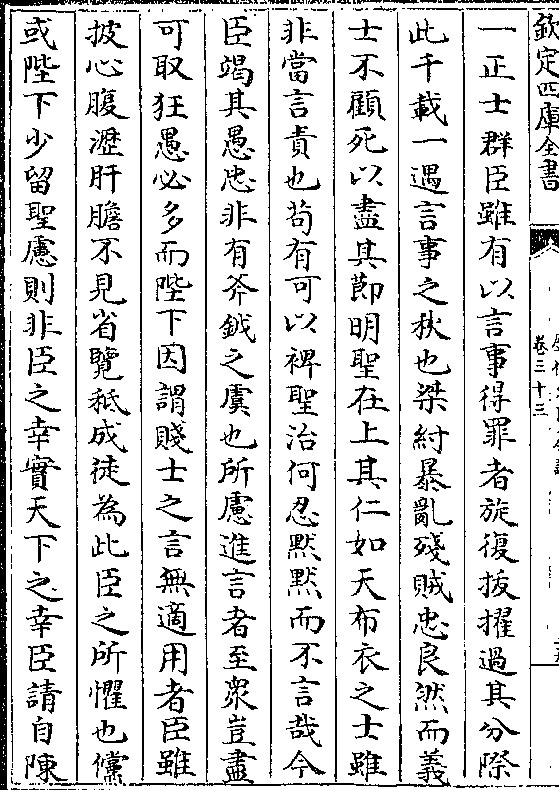 欽定四庫全書
卷三十三
一正士群臣雖有以言事得罪者旋復拔擢過其分際
此千載一遇言事之秋也桀紂暴亂殘賊忠良然而義
士不顧死以盡其節明聖在上其仁如天布衣之士雖
非當言責也苟有可以裨聖治何忍默默而不言哉今
臣竭其愚忠非有斧鉞之虞也所慮進言者至衆豈盡
可取狂愚必多而陛下因謂賤士之言無適用者臣雖
披心腹瀝肝膽不見省覽秪成徒為此臣之所懼也儻
或陛下少留聖慮則非臣之幸實天下之幸臣請自陳